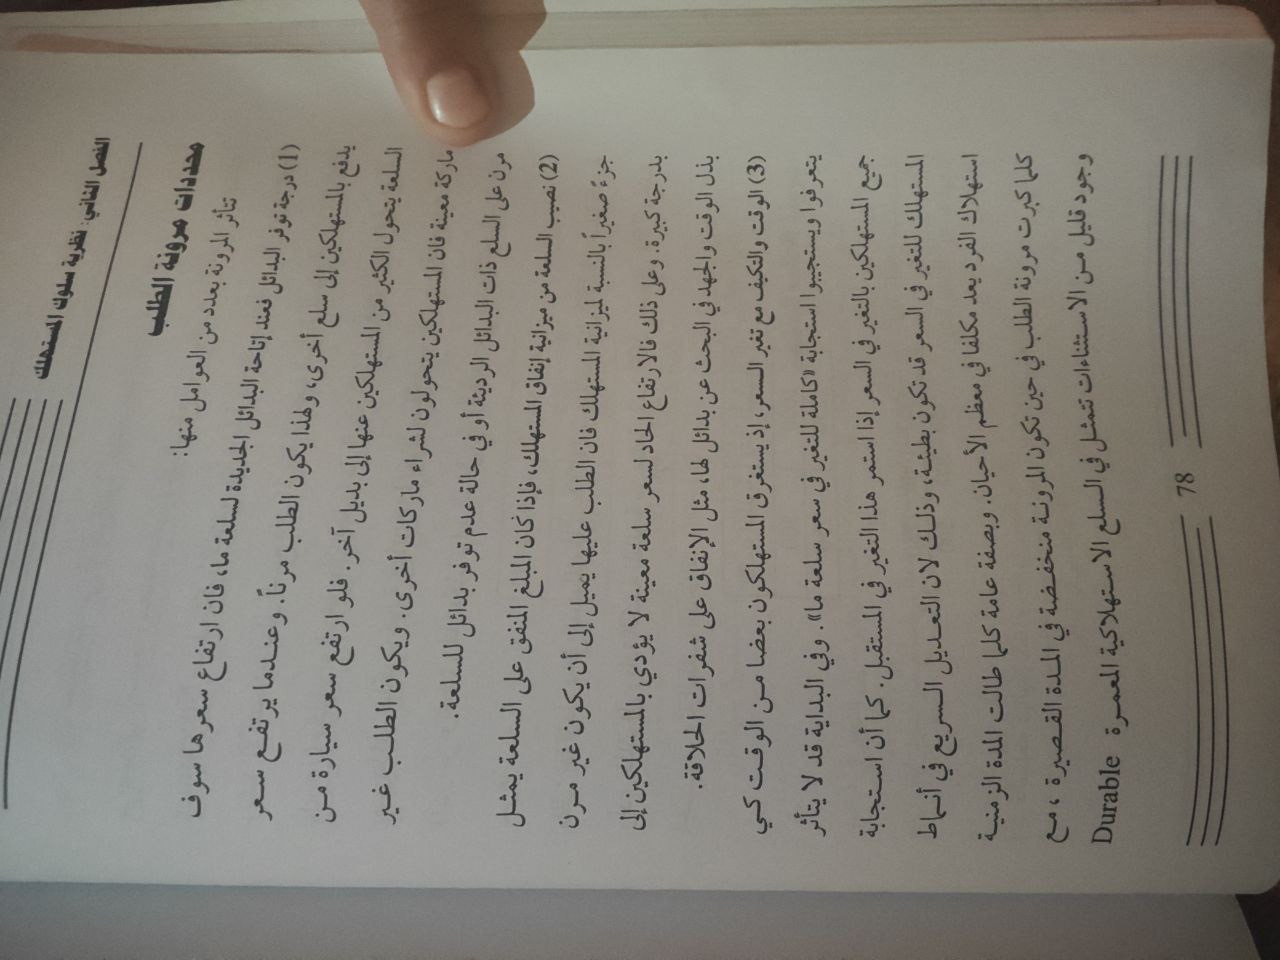 الفصل الثاني: نظرية سلوك المستهلك
محددات مرونة الطلب
تتأثر المرونة بعدد من العوامل منها:
(1) درجة توفر البدائل فعند إتاحة البدائل الجديدة لسلعة ما، فان ارتفاع سعرها سوف
يدفع بالمستهلكين إلى سلع أخرى، ولهذا يكون الطلب مرناً. وعندما يرتفع سعر
السلعة يتحول الكثير من المستهلكين عنها إلى بديل آخر. فلو ارتفع سعر سيارة من
ماركة معينة فان المستهلكين يتحولون لشراء ماركات أخرى. ويكون الطلب غير
مرن على السلع ذات البدائل الرديئة أو في حالة عدم توفر بدائل للسلعة.
(2) نصيب السلعة من ميزانية إنفاق المستهلك، فإذا كان المبلغ المنفق على السلعة يمثل
جزءً صغيراً بالنسبة لميزانية المستهلك فان الطلب عليها يميل إلى أن يكون غير مرن
بدرجة كبيرة وعلى ذلك فالارتفاع الحاد لسعر سلعة معينة لا يؤدي بالمستهلكين إلى
بذل الوقت والجهد في البحث عن بدائل لها، مثل الإنفاق على شفرات الحلاقة.
(3) الوقت والتكيف مع تغير السعر، إذ يستغرق المستهلكون بعضا من الوقت كي
يتعرفوا ويستجيبوا استجابة «كاملة للتغير في سعر سلعة ما». وفي البداية قد لا يتأثر
جميع المستهلكين بالتغير في السعر إذا استمر هذا التغير في المستقبل. كما أن استجابة
المستهلك للتغير في السعر قد تكون بطيئة، وذلك لان التعديل السريع في أنماط
استهلاك الفرد يعد مكلفا في معظم الأحيان. وبصفة عامة كلما طالت المدة الزمنية
كلما كبرت مرونة الطلب في حين تكون المرونة منخفضة في المدة القصيرة ، مع
وجود قليل من الاستثناءات تتمثل في السلع الاستهلاكية المعمرة Durable
78